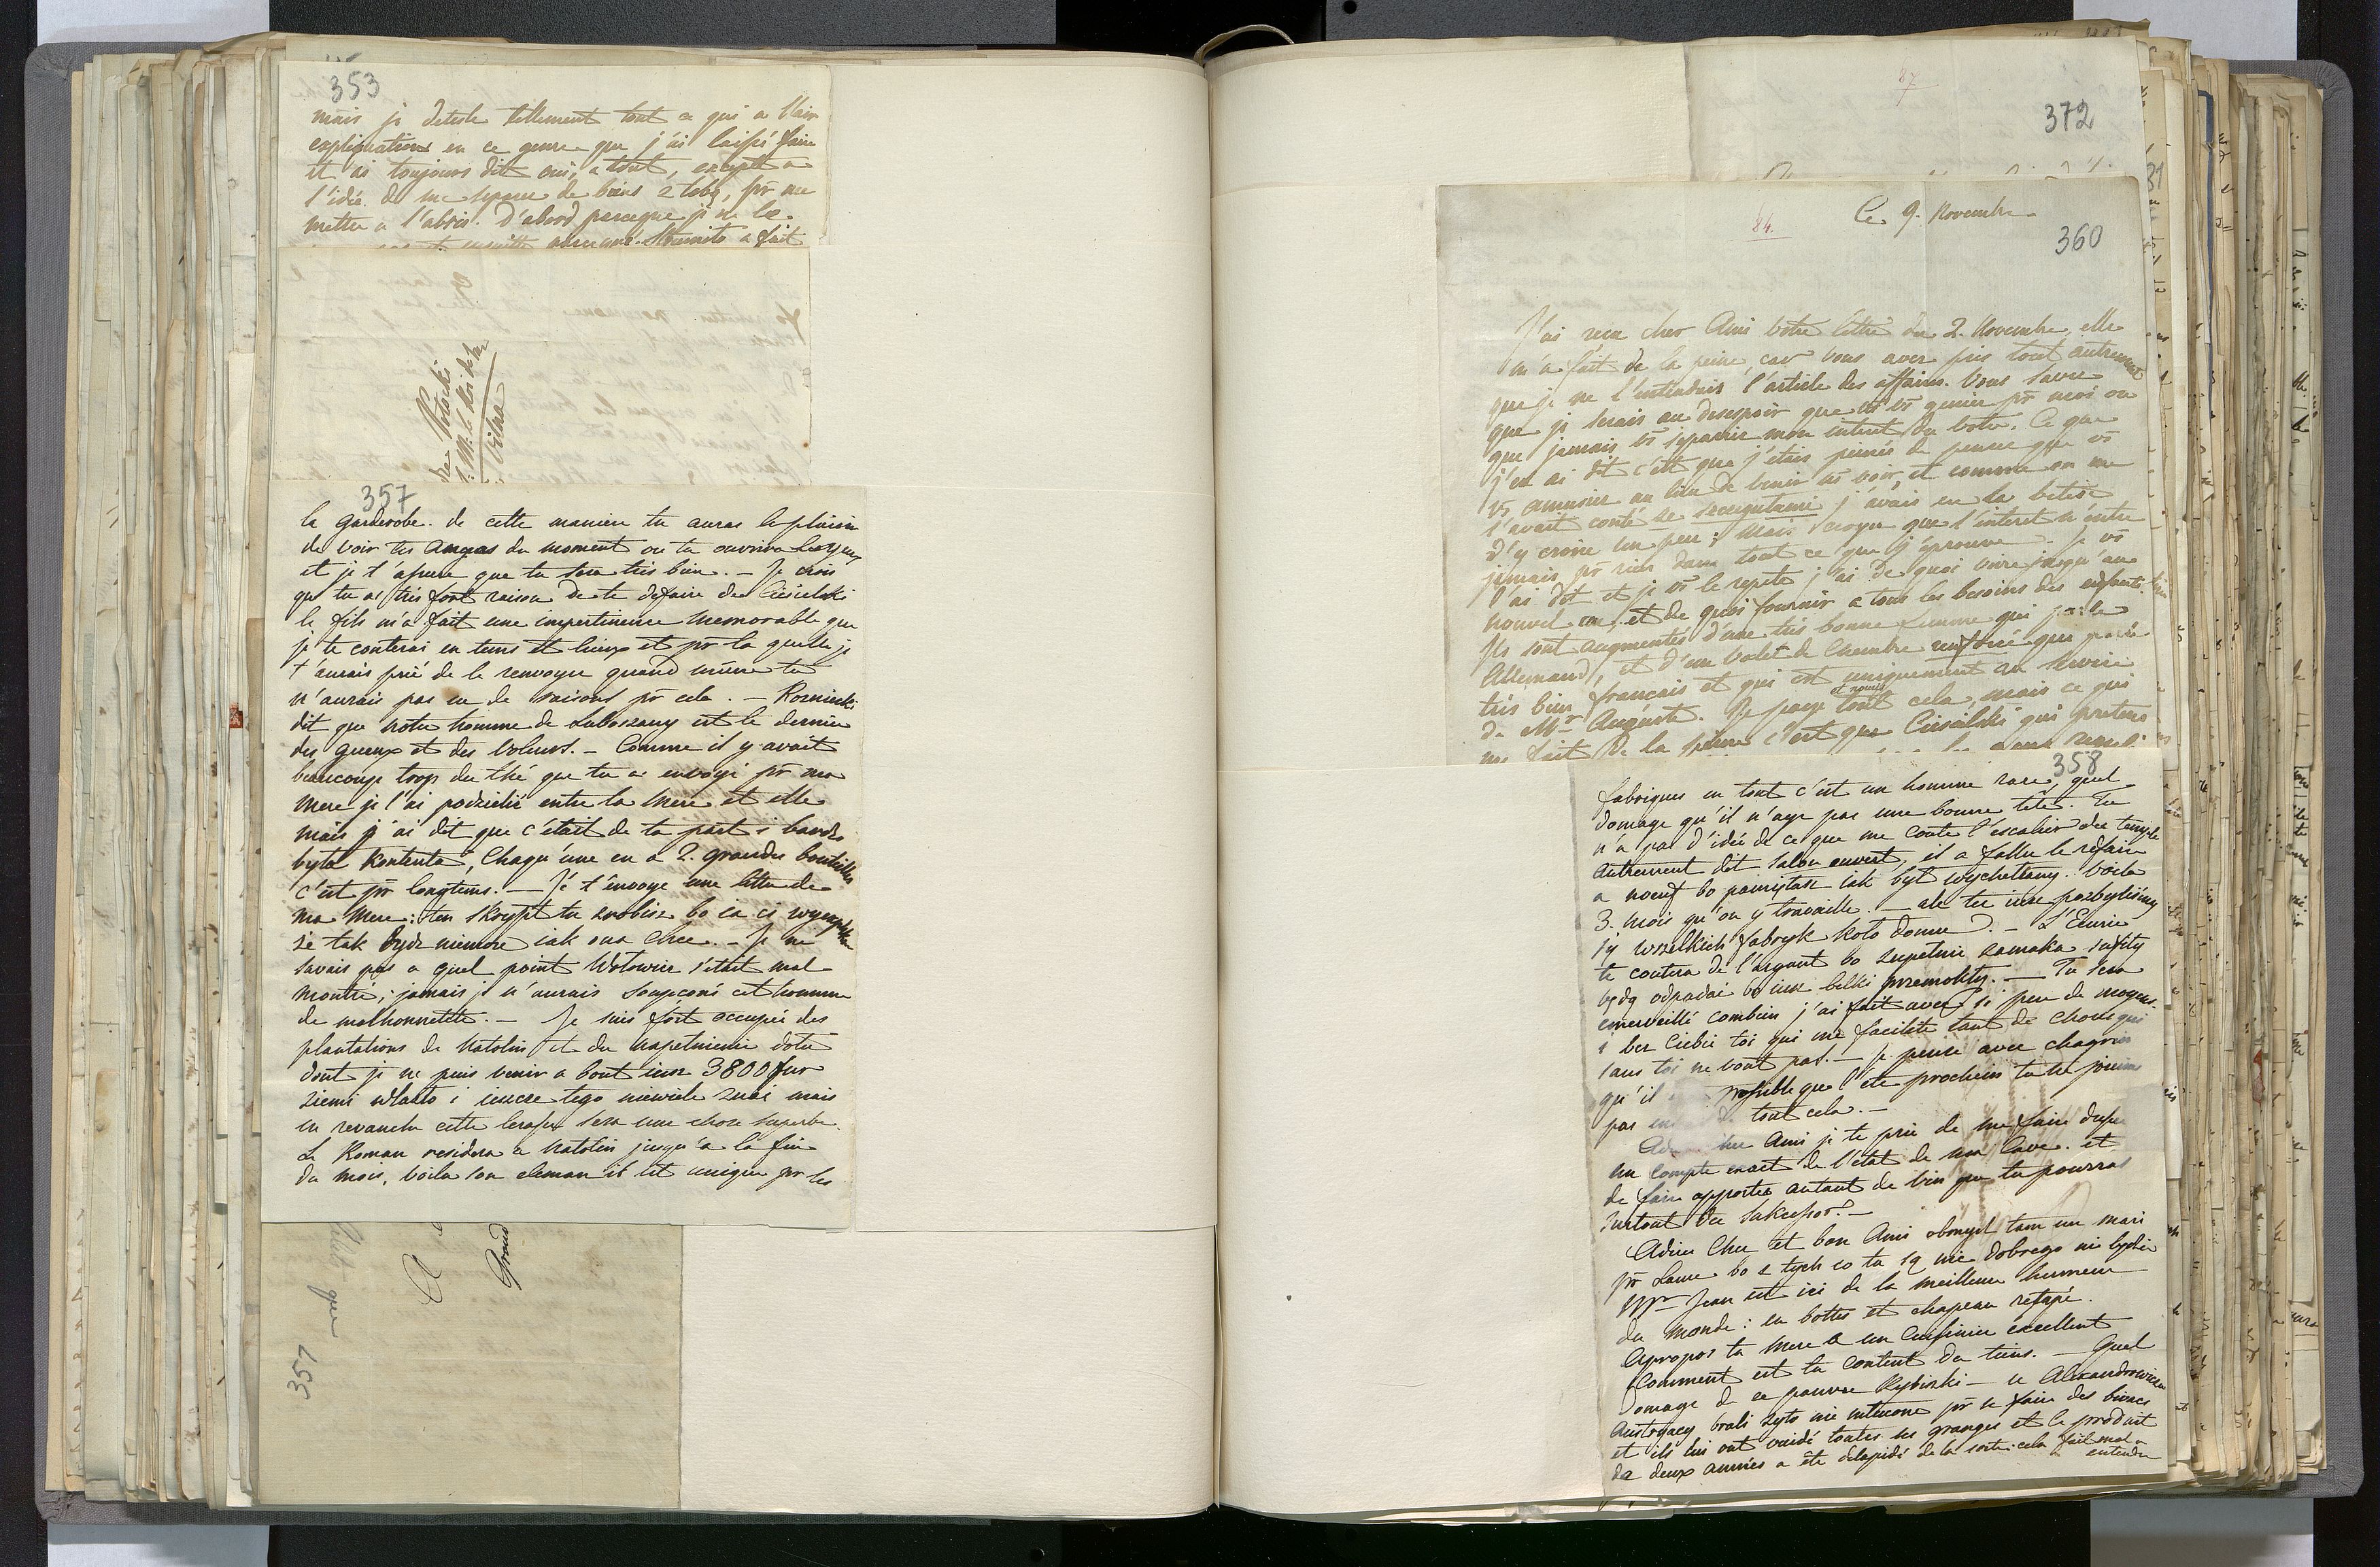 353
mais je deteste tellement tout ce qui a l'air
explications en ce genre que j'ai laissé faire
et ai toujours dit oui, a tout, excepté a
l'idée de me separer de biens z tobą, pr me
mettre a l'abris. D'abord parceque je ne le
a fait
Vilna
357
la garderobe. de cette maniere tu auras le plaisir
de voir tes Angas du moment ou tu ouvrira les yeux
et je t'assure que tu sera très bien. – Je crois
que tu as très fort raison de te defaire de Ciesielski
le fils m'a fait une impertinence memorable que
je te conterai en tems et lieux et pr la quelle je
t'aurais prié de le renvoyer quand même tu
n'aurais pas eu de raisons pr cela. – Rozniecki
dit que notre homme de Laboszany est le dernier
des gueux et des voleurs. – Comme il y avait
beaucoup trop du thé que tu a envoyé pr ma
mere je l'ai podzielić entre ta Mere et elle
mais j'ai dit que c'était de ta part i bardzo
była kontenta, Chaqu'une en a 2. grandes bouteilles
c'est pr longtems. – Je t'envoye une lettre de
ma Mere; ten skrypt tu zrobisz bo ia ci
że tak bydz niemoże iak ona chce. – Je ne
savais pas a quel point Wotowicz s'etait mal
montré, jamais je n'aurais soupçoné cet homme
de malhonnetete. – Je suis fort occupée des
plantations de Natolin et du napełnieniu dołu
dont je ne puis venir a bout iusz 3800 fur
ziemi wlazło i ieszcze tego niewiele znać mais
en revanche cette terasse sera une chose superbe.
Le Roman residera a Natolin jusqu'a la fin
du mois, voila son eleman il est unique pr les
Grod
351
372
84.
Ce 9. Novembre
360
J'ai recu cher Ami votre lettre du 2. Novembre, elle
m'a fait de la peine, car vous avez pris tout autrement
que je ne l'entendais l'article des affaires. Vous savez
que je serais au desespoir que vs vs geniez pr moi ou
que jamais vs separiez mon interet du votre. Ce que
j'en ai dit c'est que j'étais peinée de penser que vs
vs amusiez au lieu de venir ns voir, et comme on me
l'avait conté j'avais eu la betise
d'y croire un peu; Mais croyez que l'interet n'entre
jamais pr rien dans tout ce que j'éprouve. Je vs
l'ai dit et je vs le repete j'ai de quoi vivre jusqu'au
nouvel an, et de quoi fournir a tous les besoins des enfants.
Ils sont augmentés d'une très bonne femme qui parle
Allemand, et d'un valet de Chambre qui parle
très bien français et qui est uniquement au service
de Mr Auguste. Je paye et nourris tout cela, mais ce qui
me fait de la peine c'est que Ciesielski qui pretend
358
fabriques en tout c'est un homme rare, quel
domage qu'il n'aye pas une bonne tête. Tu
n'a pas d'idée de ce que me coute l'escalier du temple
autrement dit Salon ouvert, il a fallu le refaire
a noeuf bo pamiętasz iak był wychettany. Voila
3. mois qu'on y travaille. – ale tei iusz pozbyliśmy
się wszelkich fabryk koło domu. – L'Ecurie
te coutera de l'argent bo zupełnie zamaka sufity
będą odpadać bo iusz belki przemokły. – Tu sera
emerveillé combien j'ai fait avec si peu de moyens
i bez Ciebie toi qui me facilite tant de choses qui
sans toi ne vont pas. – Je pense avec chagrin
qu'il possible que l'été prochein tu ne jouiras
pas tout cela. –
cher Ami je te prie de me faire
un compte exact de l'état de ma Cave. et
de faire apporter autant de vin que tu pourras
surtout du
Adieu Cher et bon Ami obmyśl tam un mari
pr Laure bo z tych co tu są nic dobrego nie bydzie
Mr Jean est ici de la meilleure humeur
du monde: en bottes et chapeau retapé.
Apropos ta Mere a un Cuisinier excellent
Comment est tu content du tiens. – Quel
domage de ce pauvre Rybinski – le Alexandrowicza
Austryacy brali zyto nie młucone pr se faire des bivacs
et ils lui ont vuidé toutes ses granges et le produit
de deux années a été délapidé de la sorte: cela fait mal a
entendre